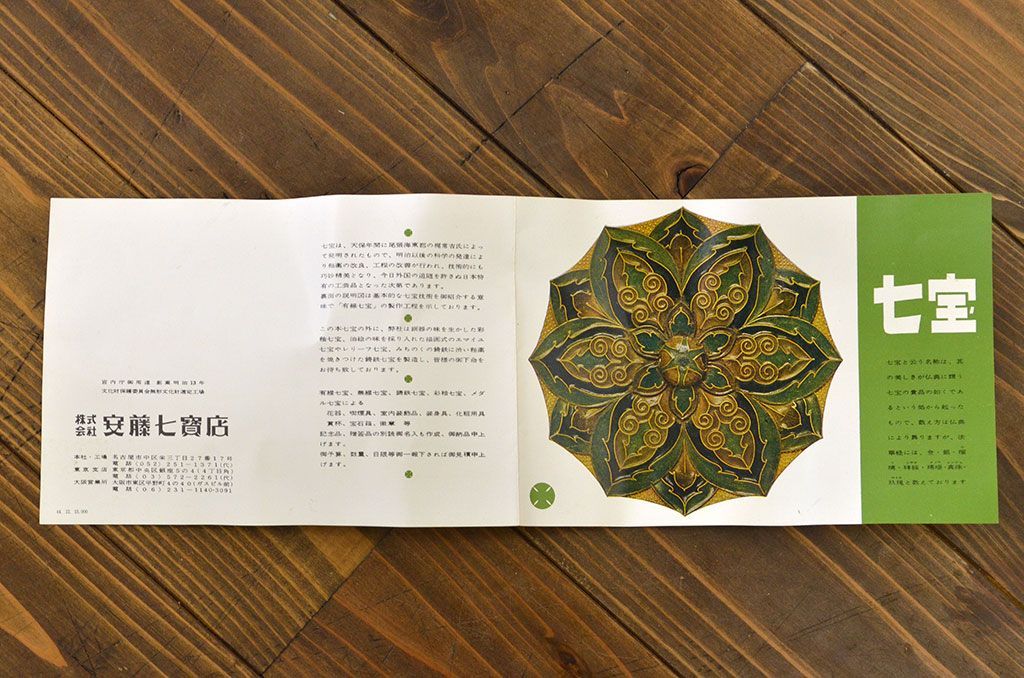 七宝
七宝と云う名称は、其
の美しさが仏典に謂う
七宝の貴品の如くであ
るという処から起った
もので、数え方は仏典
により異りますが、法
華経には、金・銀・瑠
璃・硨磲・瑪瑙・真珠・
玫瑰と数えております
七宝は、天保年間に尾張海東郡の梶常吉氏によっ
て発明されたもので、明治以後の科学の発達によ
り釉薬の改良、工程の改善が行われ、技術的にも
巧妙精美となり、今日外国の追随を許さぬ日本特
有の工芸品となった次第であります。
裏面の説明図は基本的な七宝技術を御紹介する意
味で「有線七宝」の製作工程を示しております。
この本七宝の外に、弊社は銅器の味を生かした彩
釉七宝、油絵の味を採り入れた描画式のエマイユ
七宝やレリーフ七宝、みちのくの鋳鉄に渋い釉薬
を焼きつけた鋳鉄七宝を製造し、皆様の御下命を
お待ち致しております。
有線七宝、無線七宝、鋳鉄七宝、彩釉七宝、メダ
ル七宝による
花器、喫煙具、室内装飾品、装身具、化粧用具
賞杯、宝石箱、徽章 等
記念品、贈答品の別誂御名入も作成、御納品申上
げます。
御予算、数量、日限等御一報下されば御見積申上
げます。
宮内庁御用達 創業明治13年
文化財保護委員会無形文化財選定工場
株式会社 安藤七寶店
本社・工場 名古屋市中区栄三丁目27番17号
電話(052)251-1371(代)
東京支店 東京都中央区銀座5の4(4丁目角)
電話(03)572-2261(代)
大阪営業所 大阪市東区平野町4の40(ガスビル前)
電話(06)231-1140・3091
44. 12. 15,000